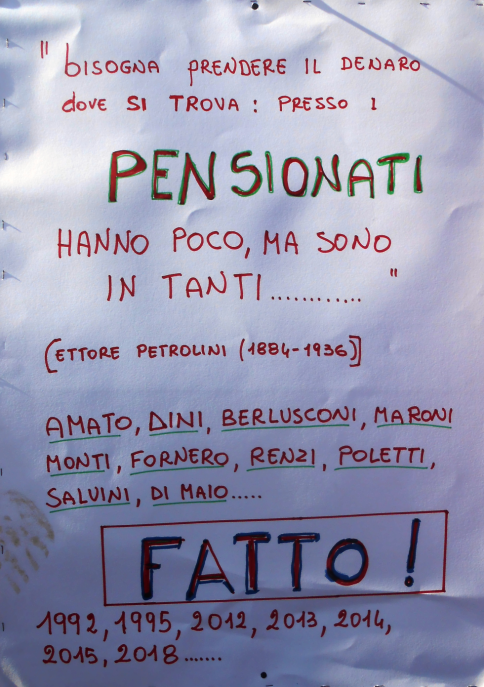 "BISOGNA PRENDERE IL DENARO
dove SI TROVA: PRESSO I
PENSIONATI
HANNO POCO, MA SONO
IN TANTI............"
[ETTORE PETROLINI (1884-1936)]
AMATO, DINI, BERLUSCONI, MARONI
MONTI, FORNERO, RENZI, POLETTI,
SALVINI, DI MAIO.....
FATTO!
1992, 1995, 2012, 2013, 2014,
2015, 2018.......